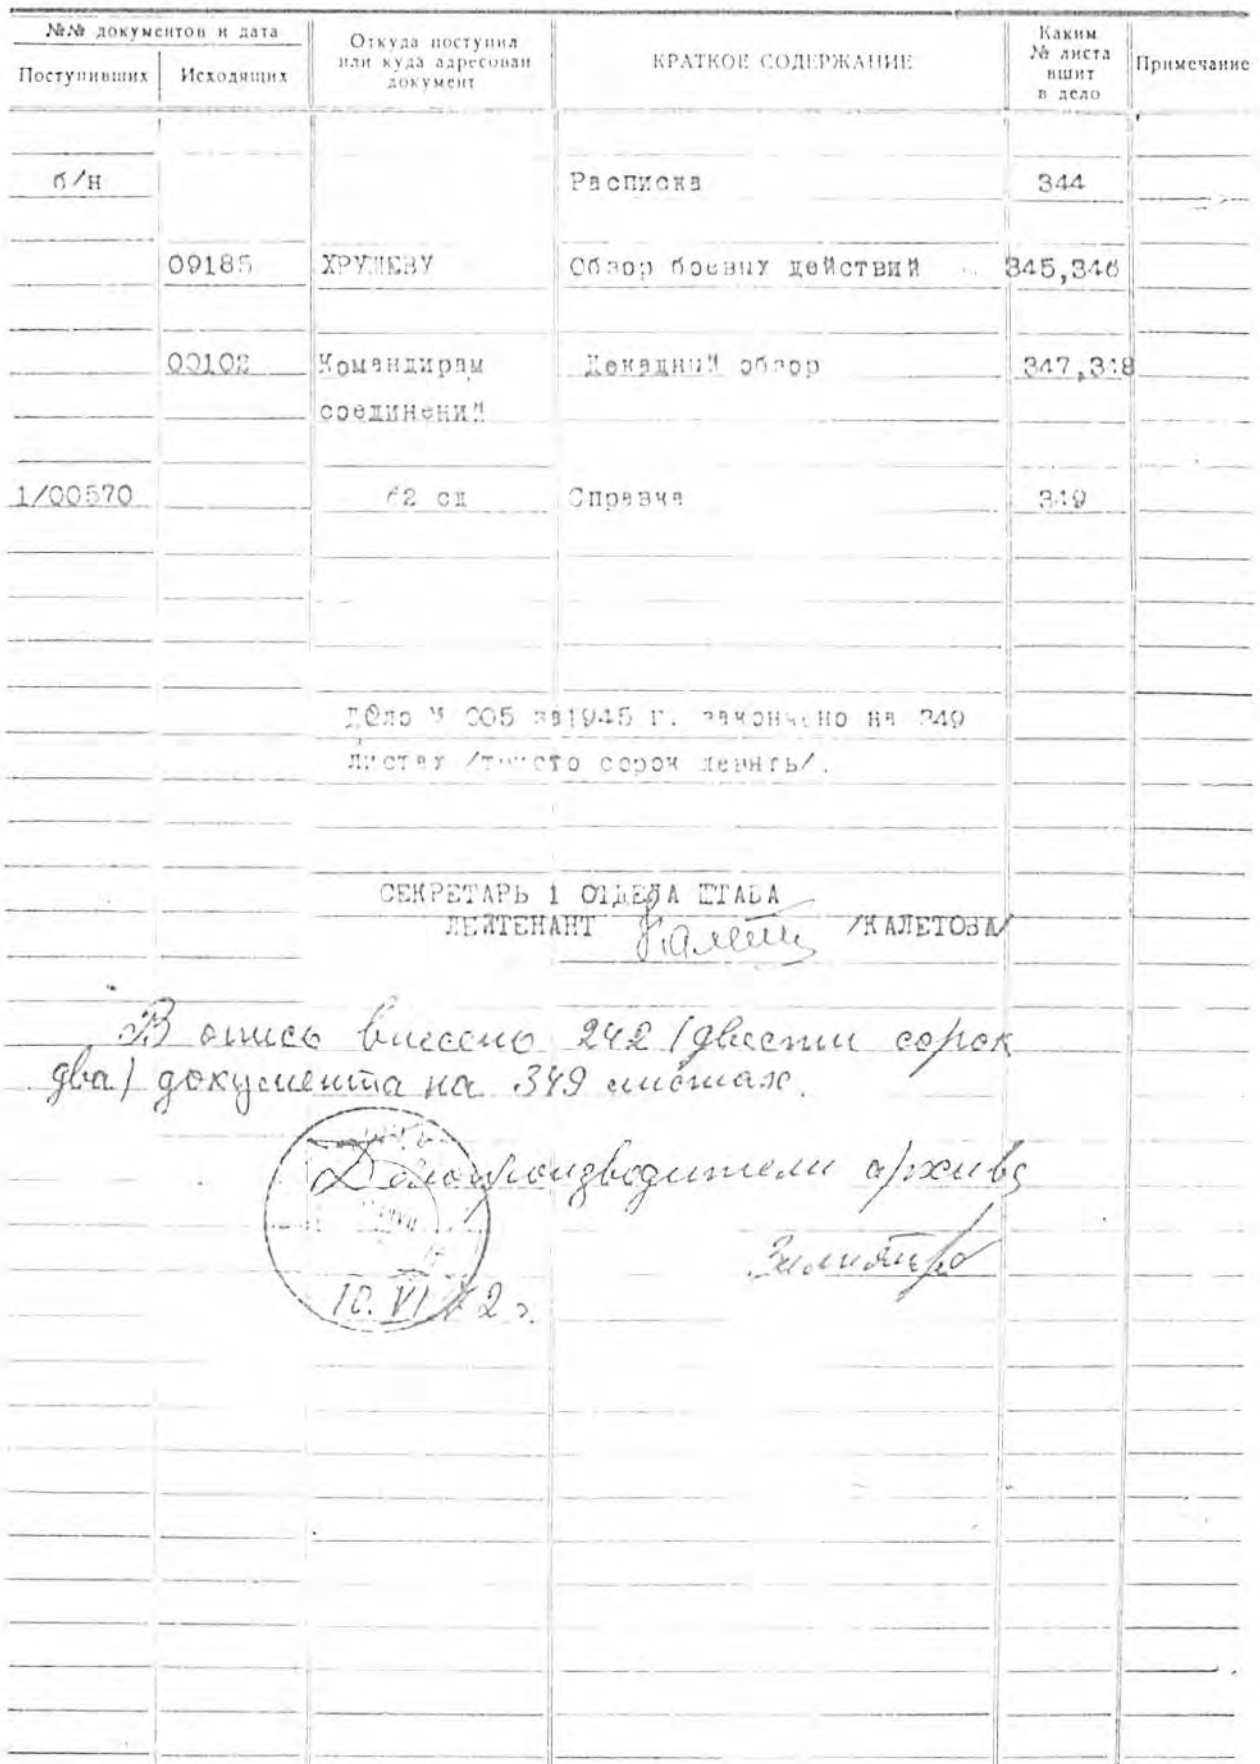 №№ документов и дата
Поступивших
Исходящих
Откуда поступил
или куда адресован
документ
КРАТКОЕ СОДЕРЖАНИЕ
Каким
№ листа
вшит
в дело
Примечание
б/н Расписка 344
09185 ХРУЩЕВУ Обзор боевых действий 345,346
00102 Командирам Декадный обзор 347,348
соединений
1/00570 62 сд Справка 349
Дело № 005 за 1945 г. закончено на 349
листах /триста сорок девять/.
СЕКРЕТАРЬ 1 ОТДЕЛА ШТАБА
ЛЕЙТЕНАНТ /КАЛЕТОВА/
В опись внесено 242 (двести сорок
два) документа на 349 листах.
Делопроизводители архива
10. VI 2 г.